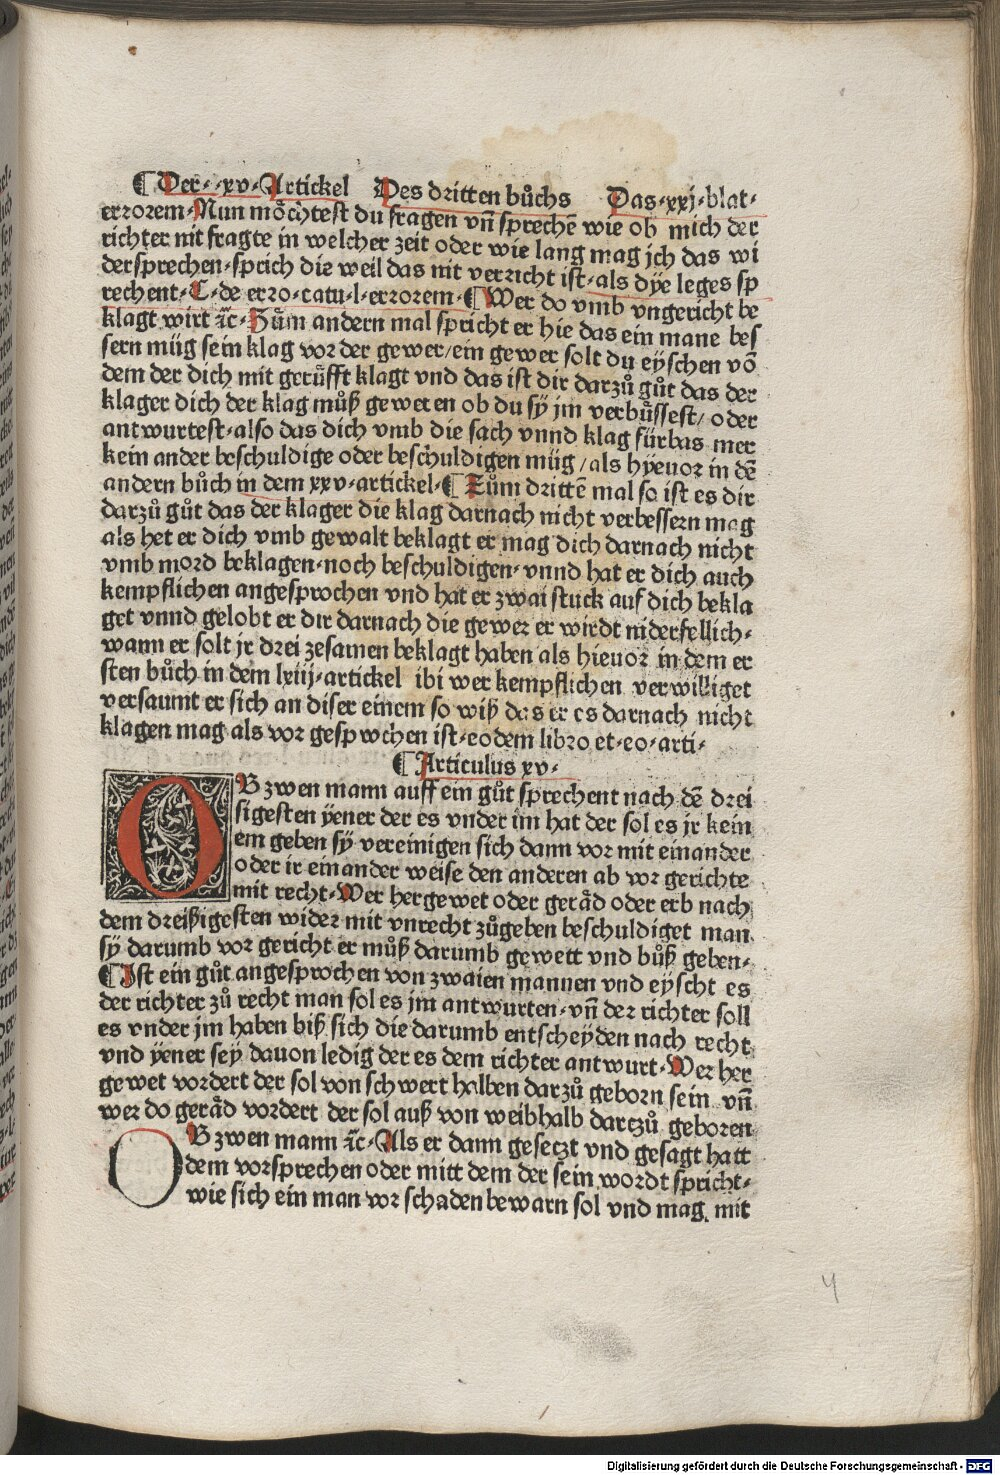 ¶Der· ·xv·Artickel Des dritten bůchs Das·xxj·blat·
errorem·Nun mo᷑chtest du fragen vn̄ spreche᷑ wie ob mich der
richter nit fragte in welcher zeit oder wie lang mag jch das wi
dersprechen·sprich die weil das nit verricht ist·als dÿe leges sp
rechent·C·de erro·catu·l·errorem·¶Wer do vmb vngericht be
klagt wirt ⁊c·Zům andern mal spricht er hie das ein mane bes
sern müg sein klag vor der gewer/ein gewer solt du eyschen võ
dem der dich mit gerüfft klagt vnd das ist dir darzů gůt das der
klager dich der klag můß geweren ob du sÿ jm verbůssest/oder
antwurtest·also das dich vmb die sach vnnd klag fürbas mer
kein ander beschuldige oder beschuldigen müg/als hÿeuor in dē
andern bůch in dem xxv·artickel·¶Zům drittē mal so ist es dir
darzů gůt das der klager die klag darnach nicht verbessern mag
als het er dich vmb gewalt beklagt er mag dich darnach nicht
vmb mord beklagen·noch beschuldigen·vnnd hat er dich auch
kempflichen angesprochen vnd hat er zwai stuck auf dich bekla
get vnnd gelobt er dir darnach die gewer er wirdt niderfellich·
wann er solt jr drei zesamen beklagt haben als hieuor in dem er
sten bůch in dem lxiij·artickel ibi wer kempflichen verwilliget
versaumt er sich an diser einem so wiß das er es darnach nicht
klagen mag als vor gesprochen ist·eodem libro et·eo·arti·
¶Articulus xv·
OB zwen mann auff ein gůt sprechent nach dē drei
sigesten ÿener der es vnder im hat der sol es jr kein
em geben sÿ vereinigen sich dann vor mit einander
oder ir einander weise den anderen ab vor gerichte
mit recht·Wer hergewet oder geräd oder erb nach
dem dreißigesten wider mit vnrecht zůgeben beschuldiget man
sÿ darumb vor gericht er můß darumb gewett vnd bůß geben·
¶Ist ein gůt angesprochen von zwaien mannen vnd eyscht es
der richter zů recht man sol es jm antwurten·vn̄ der richter soll
es vnder jm haben biß sich die darumb entscheyden nach recht
vnd ÿener sey dauon ledig der es dem richter antwurt·Wer her
gewet vordert der sol von schwert halben darzů geborn sein vn̄
wer do geräd vordert der sol auß von weibhalb darczů geboren
OB zwen mann ⁊c·Als er dann geseczt vnd gesagt hatt
dem vorsprechen oder mitt dem der sein wordt spricht·
wie sich ein man vor schaden bewarn sol vnd mag mit
4
Digitalisierung gefördert durch die Deutsche Forschungsgemeinschaft · DFG